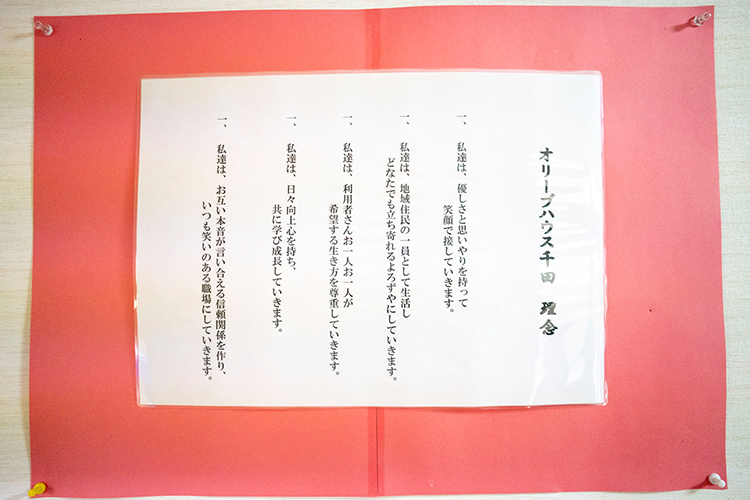 オリーブハウス千田　理念
一、　私達は、優しさと思いやりを持って
笑顔で接していきます。
一、　私達は、地域住民の一員として生活し
どなたでも立ち寄れるよろずやにしていきます。
一、　私達は、利用者さんお一人お一人が
希望する生き方を尊重していきます。
一、　私達は、日々向上心を持ち、
共に学び成長していきます。
一、　私達は、お互い本音が言い合える信頼関係を作り、
いつも笑いのある職場にしていきます。